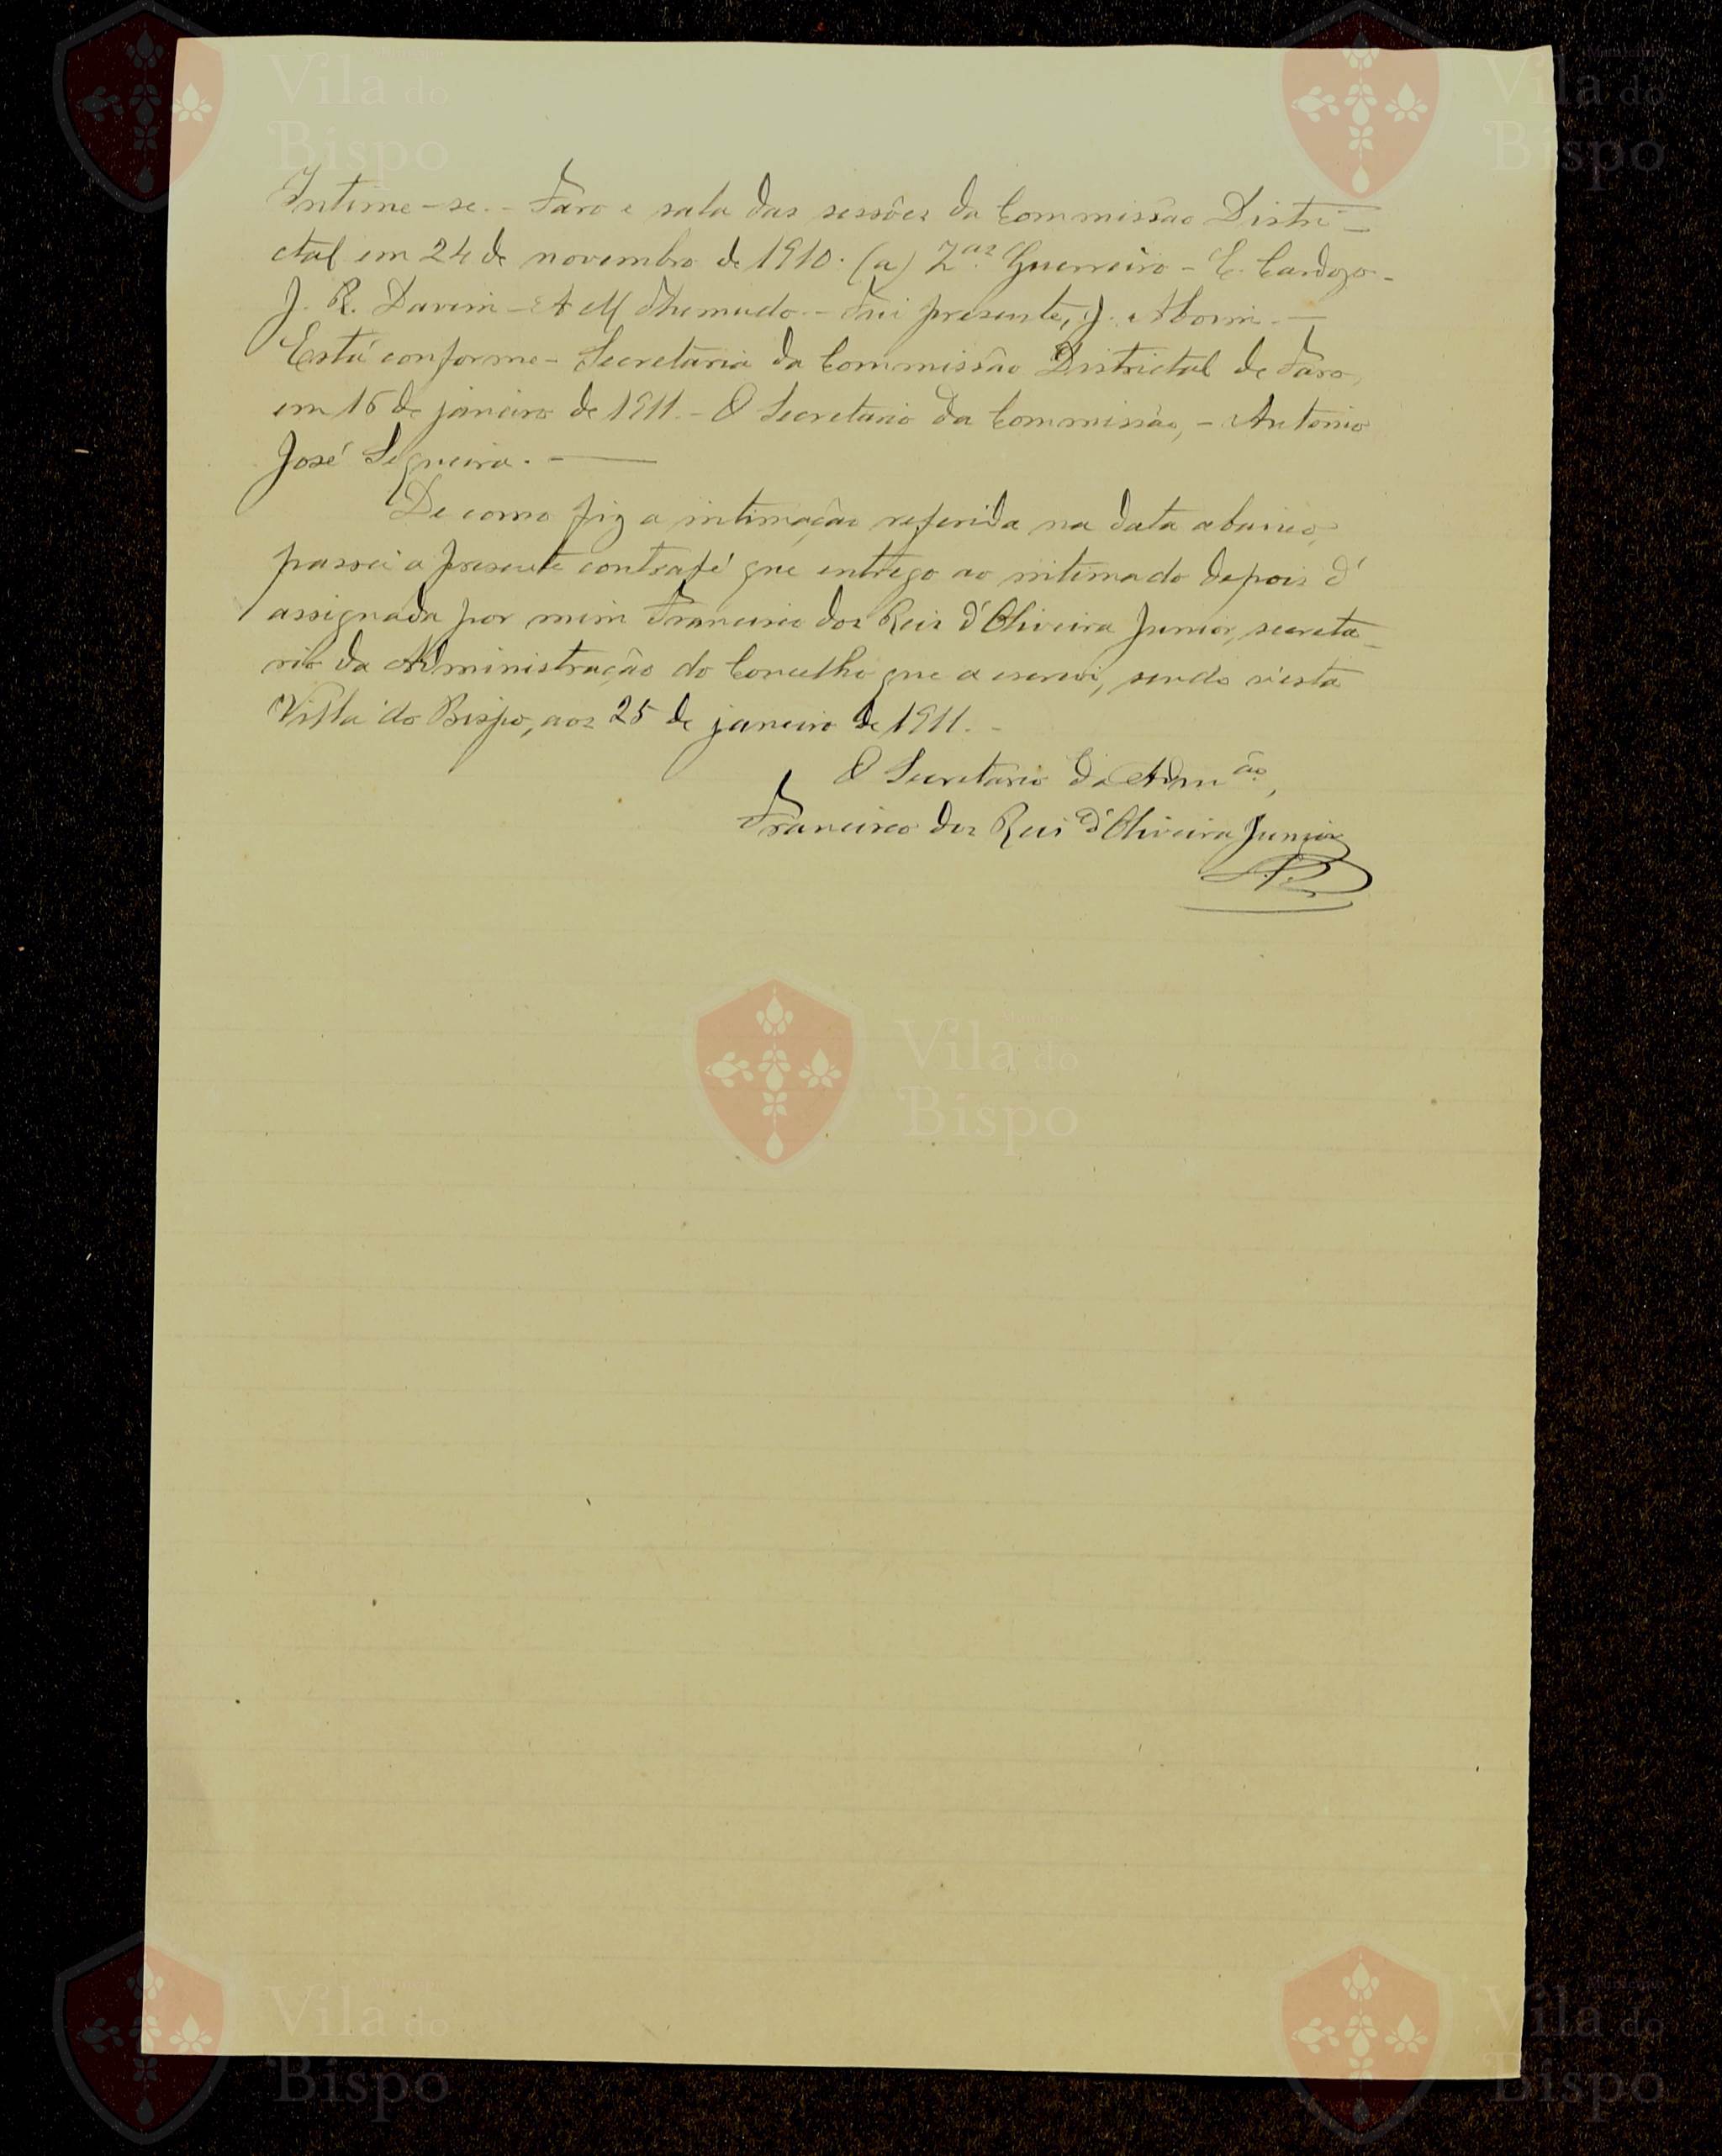 Vila do
Bispo
Vila do
Bispo
Intime-se. - Faro e sala das sessões da Commissão Distri-
ctal em 24 de novembro de 1910. (a) Z.as Guerreiro - C. Cardozo -
J. R. Davim - A M Themudo. - Fui presente, J. Aboim. -
Está conforme - Secretaria da Commissão Districtal de Faro,
em 16 de janeiro de 1911. - O Secretario da Commissão, - Antonio
José Sequeira. -
De como fiz a intimação referida na data abaixo,
passei a presente contrafé que entrego ao intimado depois d'
assignada por mim Francisco dos Reis d'Oliveira Junior, secreta-
rio da Administração do Concelho que a escrevi, sendo n'esta
Villa do Bispo, aos 25 de janeiro de 1911. -
O Secretario da Adm.ão,
Francisco dos Reis d'Oliveira Junior
Vila do
Bispo
Vila do
Bispo
Vila do
Bispo